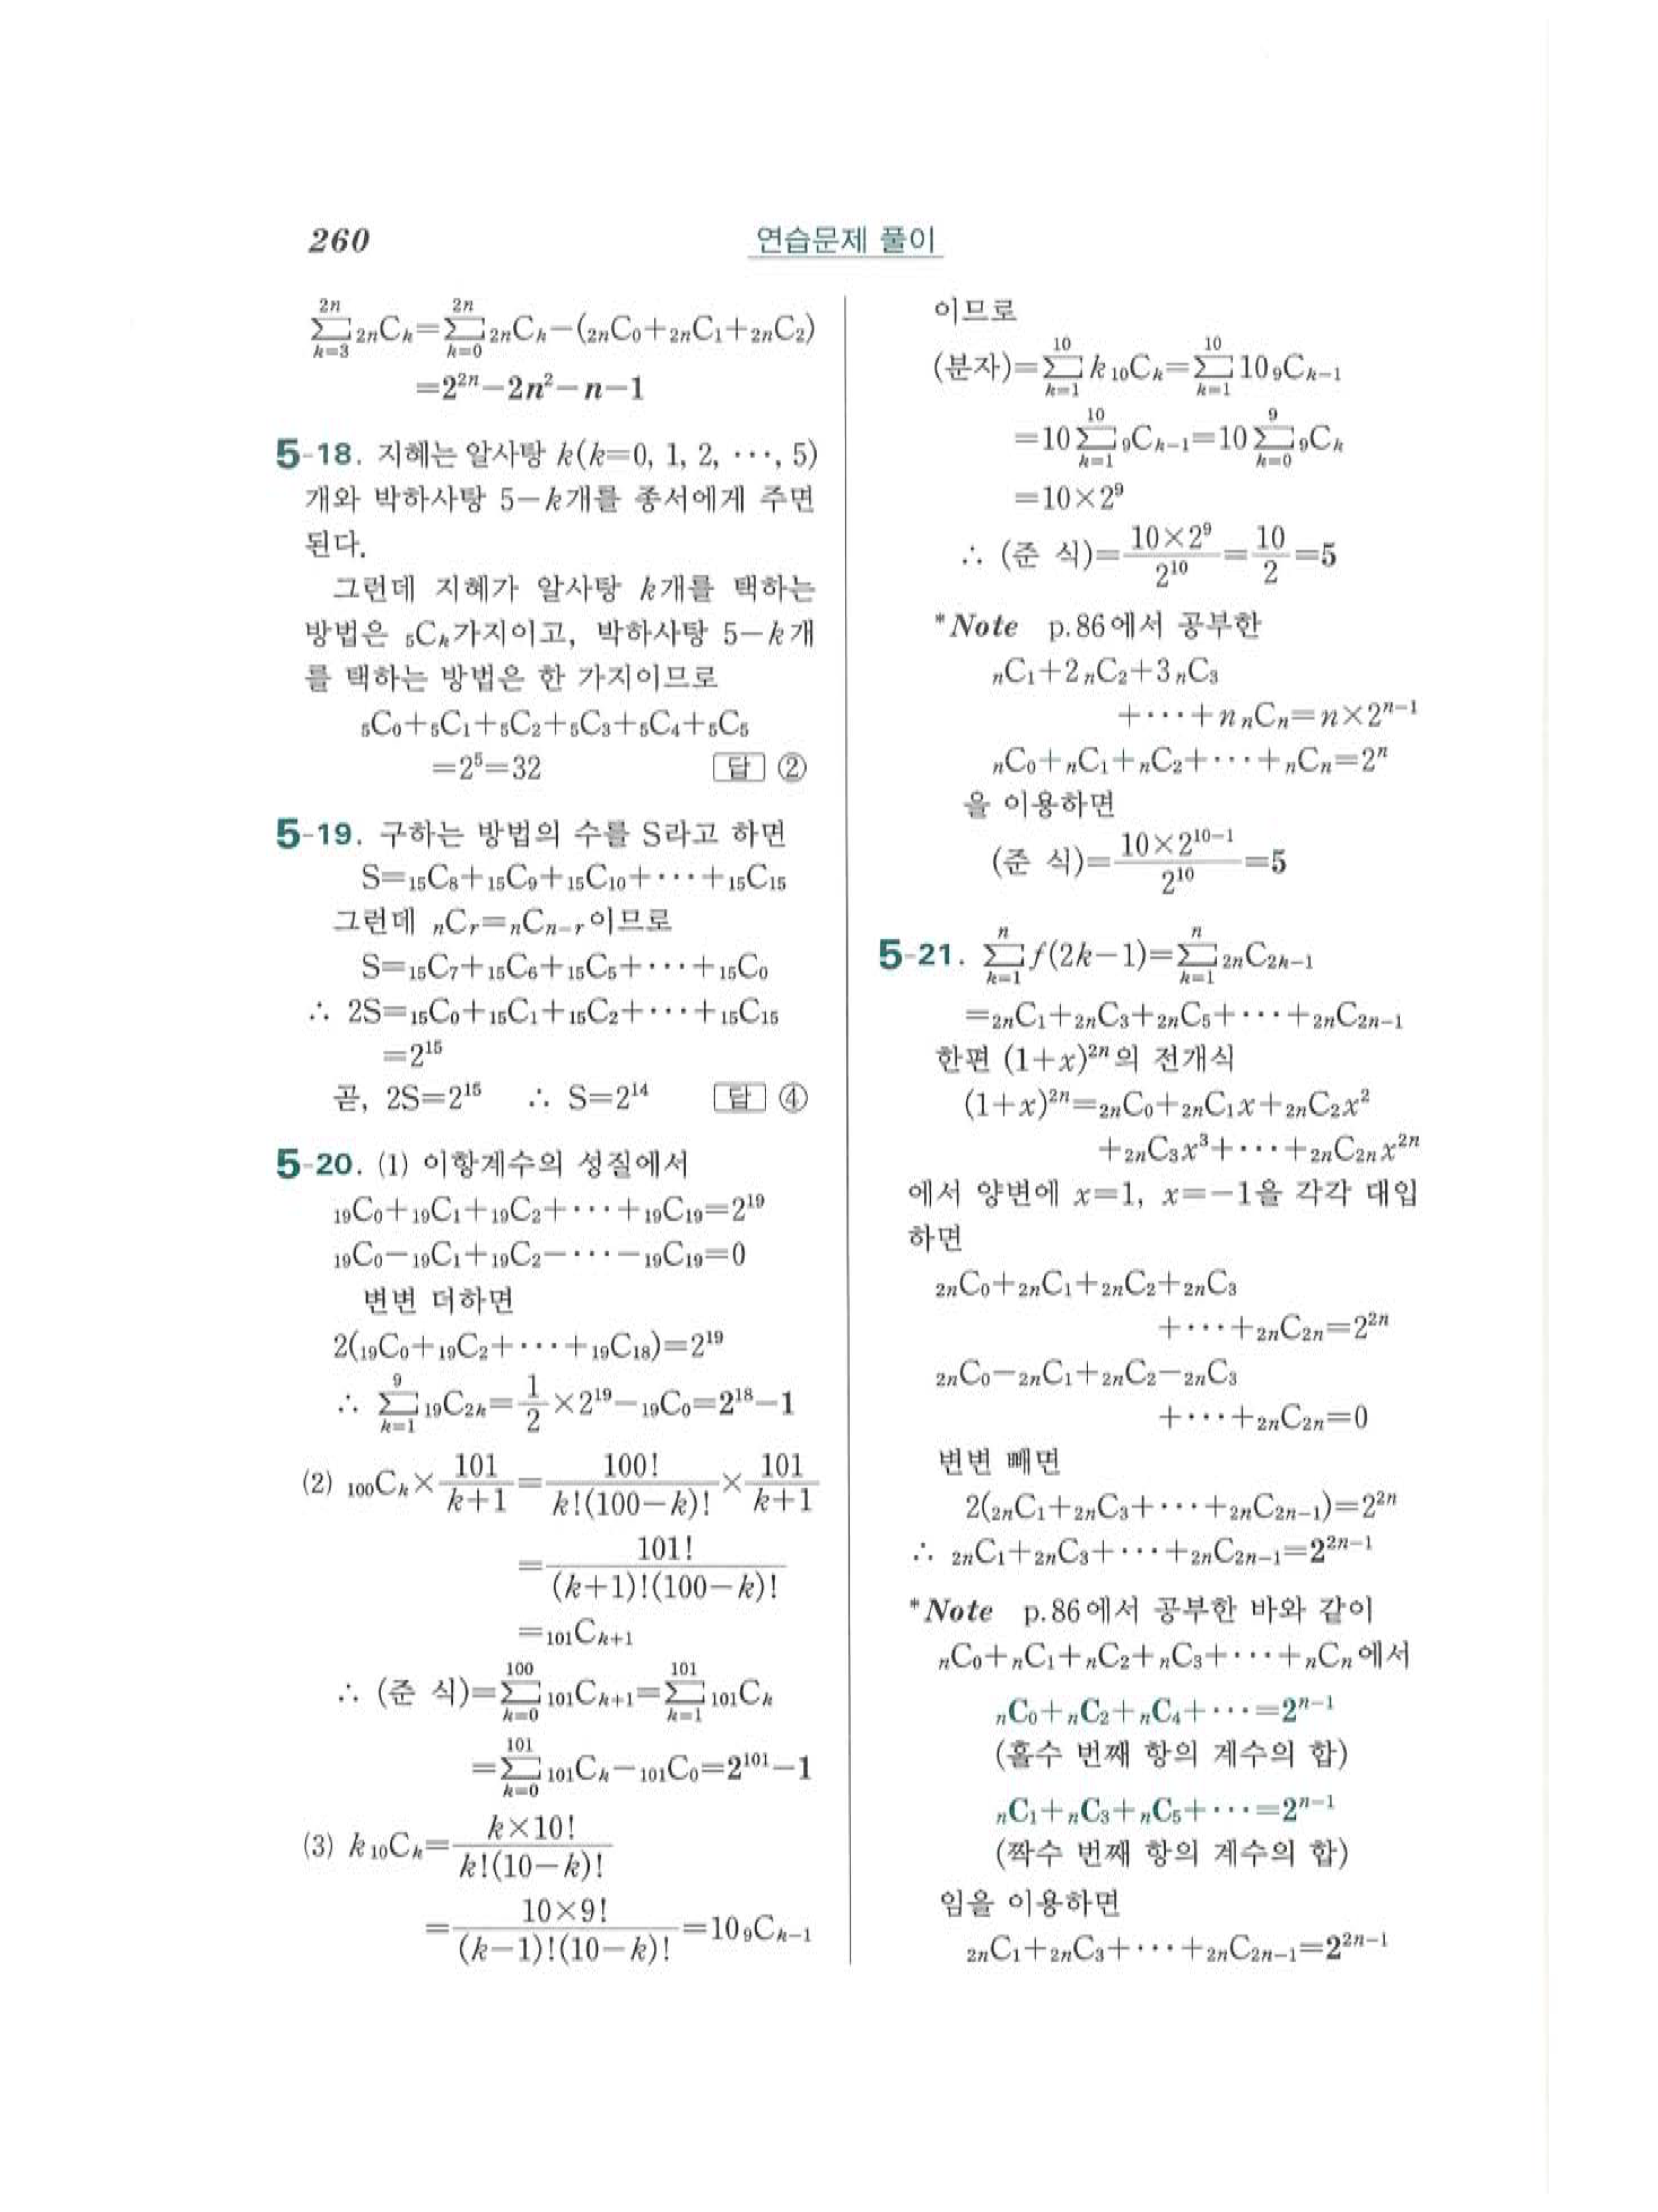 260
연습문제 풀이
$\sum_{k=3}^{2n} {}_{2n}C_k = \sum_{k=0}^{2n} {}_{2n}C_k - ({}_{2n}C_0 + {}_{2n}C_1 + {}_{2n}C_2)$
$= 2^{2n} - 2n^2 - n - 1$
5-18. 지혜는 알사탕 $k(k=0, 1, 2, \cdots, 5)$
개와 박하사탕 $5-k$개를 종서에게 주면
된다.
그런데 지혜가 알사탕 $k$개를 택하는
방법은 ${}_5C_k$가지이고, 박하사탕 $5-k$개
를 택하는 방법은 한 가지이므로
${}_5C_0 + {}_5C_1 + {}_5C_2 + {}_5C_3 + {}_5C_4 + {}_5C_5$
$= 2^5 = 32$ 답 ②
5-19. 구하는 방법의 수를 S라고 하면
$S = {}_{15}C_8 + {}_{15}C_9 + {}_{15}C_{10} + \cdots + {}_{15}C_{15}$
그런데 ${}_nC_r = {}_nC_{n-r}$이므로
$S = {}_{15}C_7 + {}_{15}C_6 + {}_{15}C_5 + \cdots + {}_{15}C_0$
∴ $2S = {}_{15}C_0 + {}_{15}C_1 + {}_{15}C_2 + \cdots + {}_{15}C_{15}$
$= 2^{15}$
곧, $2S = 2^{15}$ ∴ $S = 2^{14}$ 답 ④
5-20. (1) 이항계수의 성질에서
${}_{19}C_0 + {}_{19}C_1 + {}_{19}C_2 + \cdots + {}_{19}C_{19} = 2^{19}$
${}_{19}C_0 - {}_{19}C_1 + {}_{19}C_2 - \cdots - {}_{19}C_{19} = 0$
변변 더하면
$2({}_{19}C_0 + {}_{19}C_2 + \cdots + {}_{19}C_{18}) = 2^{19}$
∴ $\sum_{k=1}^{9} {}_{19}C_{2k} = \frac{1}{2} \times 2^{19} - {}_{19}C_0 = 2^{18} - 1$
(2) ${}_{100}C_k \times \frac{101}{k+1} = \frac{100!}{k!(100-k)!} \times \frac{101}{k+1}$
$= \frac{101!}{(k+1)!(100-k)!}$
$= {}_{101}C_{k+1}$
∴ (준 식)$= \sum_{k=0}^{100} {}_{101}C_{k+1} = \sum_{k=1}^{101} {}_{101}C_k$
$= \sum_{k=0}^{101} {}_{101}C_k - {}_{101}C_0 = 2^{101} - 1$
(3) $k\,{}_{10}C_k = \frac{k \times 10!}{k!(10-k)!}$
$= \frac{10 \times 9!}{(k-1)!(10-k)!} = 10\,{}_9C_{k-1}$
이므로
(분자)$= \sum_{k=1}^{10} k\,{}_{10}C_k = \sum_{k=1}^{10} 10\,{}_9C_{k-1}$
$= 10\sum_{k=1}^{10} {}_9C_{k-1} = 10\sum_{k=0}^{9} {}_9C_k$
$= 10 \times 2^9$
∴ (준 식)$= \frac{10 \times 2^9}{2^{10}} = \frac{10}{2} = 5$
*Note p.86에서 공부한
${}_nC_1 + 2\,{}_nC_2 + 3\,{}_nC_3$
$+ \cdots + n\,{}_nC_n = n \times 2^{n-1}$
${}_nC_0 + {}_nC_1 + {}_nC_2 + \cdots + {}_nC_n = 2^n$
을 이용하면
(준 식)$= \frac{10 \times 2^{10-1}}{2^{10}} = 5$
5-21. $\sum_{k=1}^{n} f(2k-1) = \sum_{k=1}^{n} {}_{2n}C_{2k-1}$
$= {}_{2n}C_1 + {}_{2n}C_3 + {}_{2n}C_5 + \cdots + {}_{2n}C_{2n-1}$
한편 $(1+x)^{2n}$의 전개식
$(1+x)^{2n} = {}_{2n}C_0 + {}_{2n}C_1x + {}_{2n}C_2x^2$
$+ {}_{2n}C_3x^3 + \cdots + {}_{2n}C_{2n}x^{2n}$
에서 양변에 $x=1$, $x=-1$을 각각 대입
하면
${}_{2n}C_0 + {}_{2n}C_1 + {}_{2n}C_2 + {}_{2n}C_3$
$+ \cdots + {}_{2n}C_{2n} = 2^{2n}$
${}_{2n}C_0 - {}_{2n}C_1 + {}_{2n}C_2 - {}_{2n}C_3$
$+ \cdots + {}_{2n}C_{2n} = 0$
변변 빼면
$2({}_{2n}C_1 + {}_{2n}C_3 + \cdots + {}_{2n}C_{2n-1}) = 2^{2n}$
∴ ${}_{2n}C_1 + {}_{2n}C_3 + \cdots + {}_{2n}C_{2n-1} = 2^{2n-1}$
*Note p.86에서 공부한 바와 같이
${}_nC_0 + {}_nC_1 + {}_nC_2 + {}_nC_3 + \cdots + {}_nC_n$에서
${}_nC_0 + {}_nC_2 + {}_nC_4 + \cdots = 2^{n-1}$
(홀수 번째 항의 계수의 합)
${}_nC_1 + {}_nC_3 + {}_nC_5 + \cdots = 2^{n-1}$
(짝수 번째 항의 계수의 합)
임을 이용하면
${}_{2n}C_1 + {}_{2n}C_3 + \cdots + {}_{2n}C_{2n-1} = 2^{2n-1}$